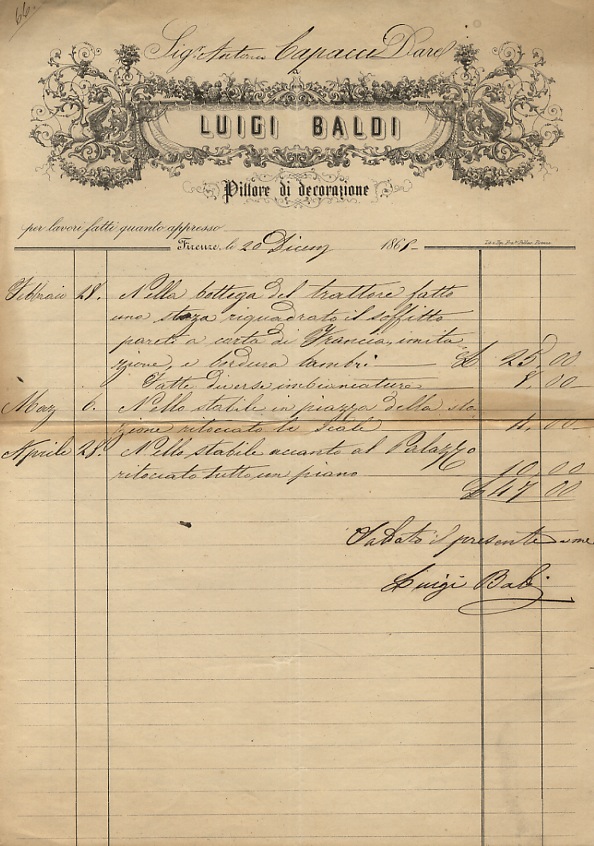 66.
Sigr Antonio Capacci Dare
LUIGI BALDI
Pittore di decorazione
per lavori fatti quanto appresso
Firenze, li 20 Dicem 186
Febbraio 28. Nella bottega del trattore fatto
una staza riquadrato il soffitto
pareti a carta di Francia, imita
zione, e bordura lambri £ 25 00
Fatti diverse imbianiature 8 00
Marz 6. Nello stabile in piazza della sta
zione ritociato le scale 4. 00
Aprile 28. Nello stabile accanto al Palazzo
ritociato tutto un piano 10 00
£ 47 00
Saldato il presente a me
Luigi Baldi